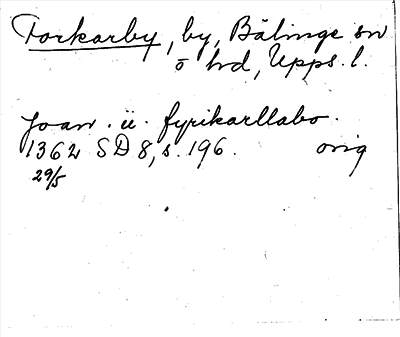 Forkarby, by, Bälinge sn
o hd, Upps. l.
Joan . ii . fyrikarllabo.
1362 SD 8, s. 196. orig
29/5